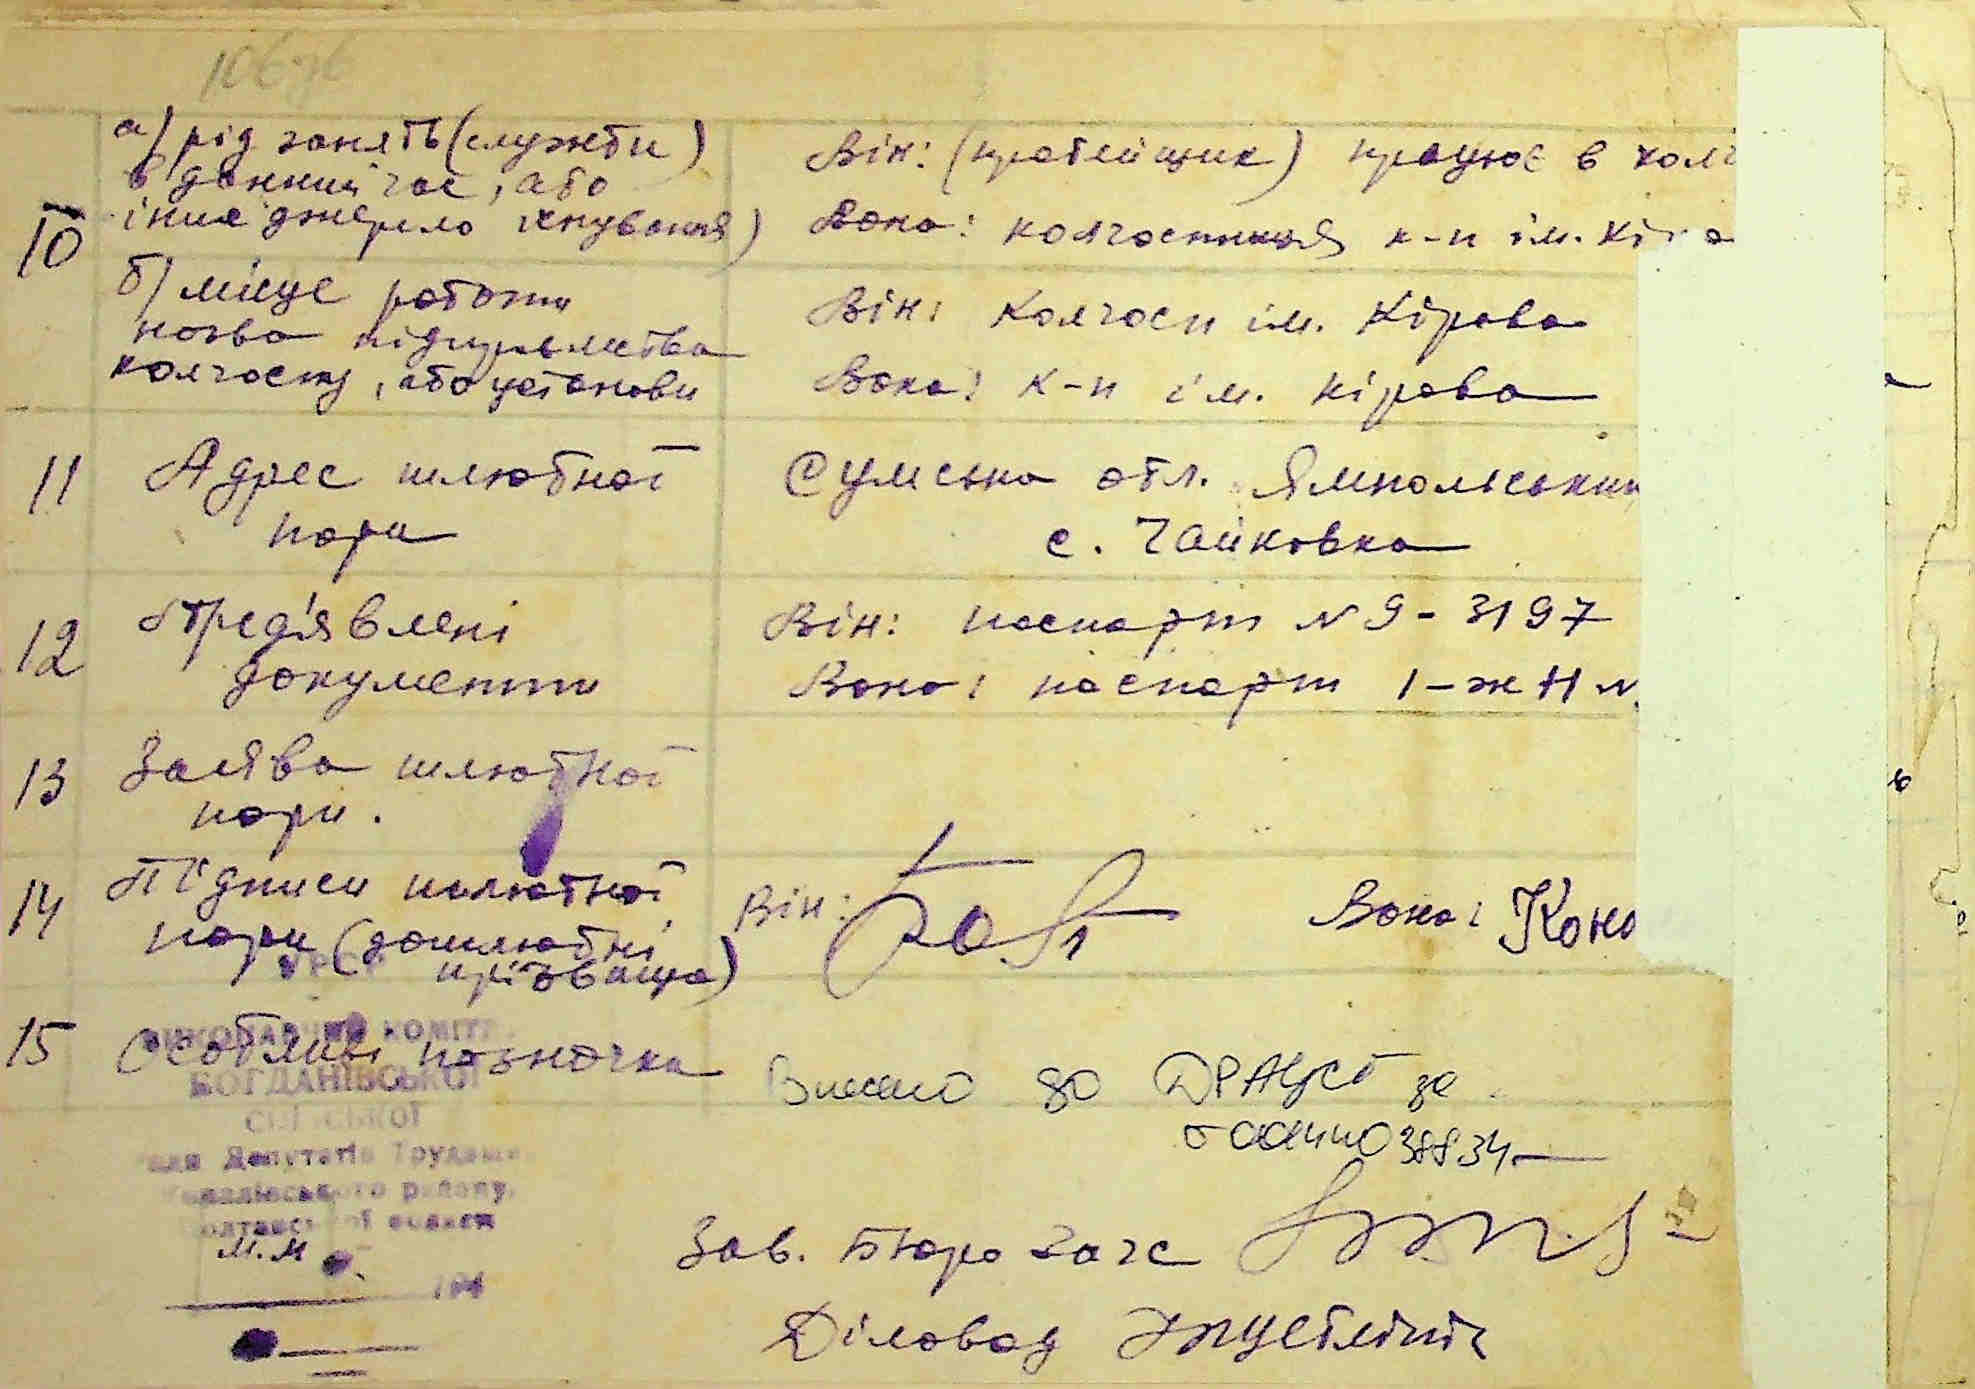 10
а) рід занять (служби)
в данний час, або
інше джерело існування)
Він: ( ) працює в колг
Вона: колгоспниця к-п ім. Кіро
б) місце роботи
назва підприємства
колгоспу, або установи
Він: Колгосп ім. Кірова
Вона: к-п ім. Кірова
11 Адрес шлюбної
пари
Сумська обл. Ямпольський
с. Чайковка
12 Пред'явлені
документи
Він: паспорт № 9-3197
Вона: паспорт 1-ж Н №
13 Заява шлюбної
пари.
14 Підписи шлюбної
пари (дошлюбні
прізвища)
Він:
Вона: Коно
15 Особливі позначки
до ДРАЦС за
38834
УРСР
ВИКОНАВЧИЙ КОМІТЕ
БОГДАНІВСЬКОЇ
СІЛЬСЬКОЇ
Ради Депутатів Трудящ
району,
Полтавської області
М.М
194
Зав. Бюро Загс
Діловод